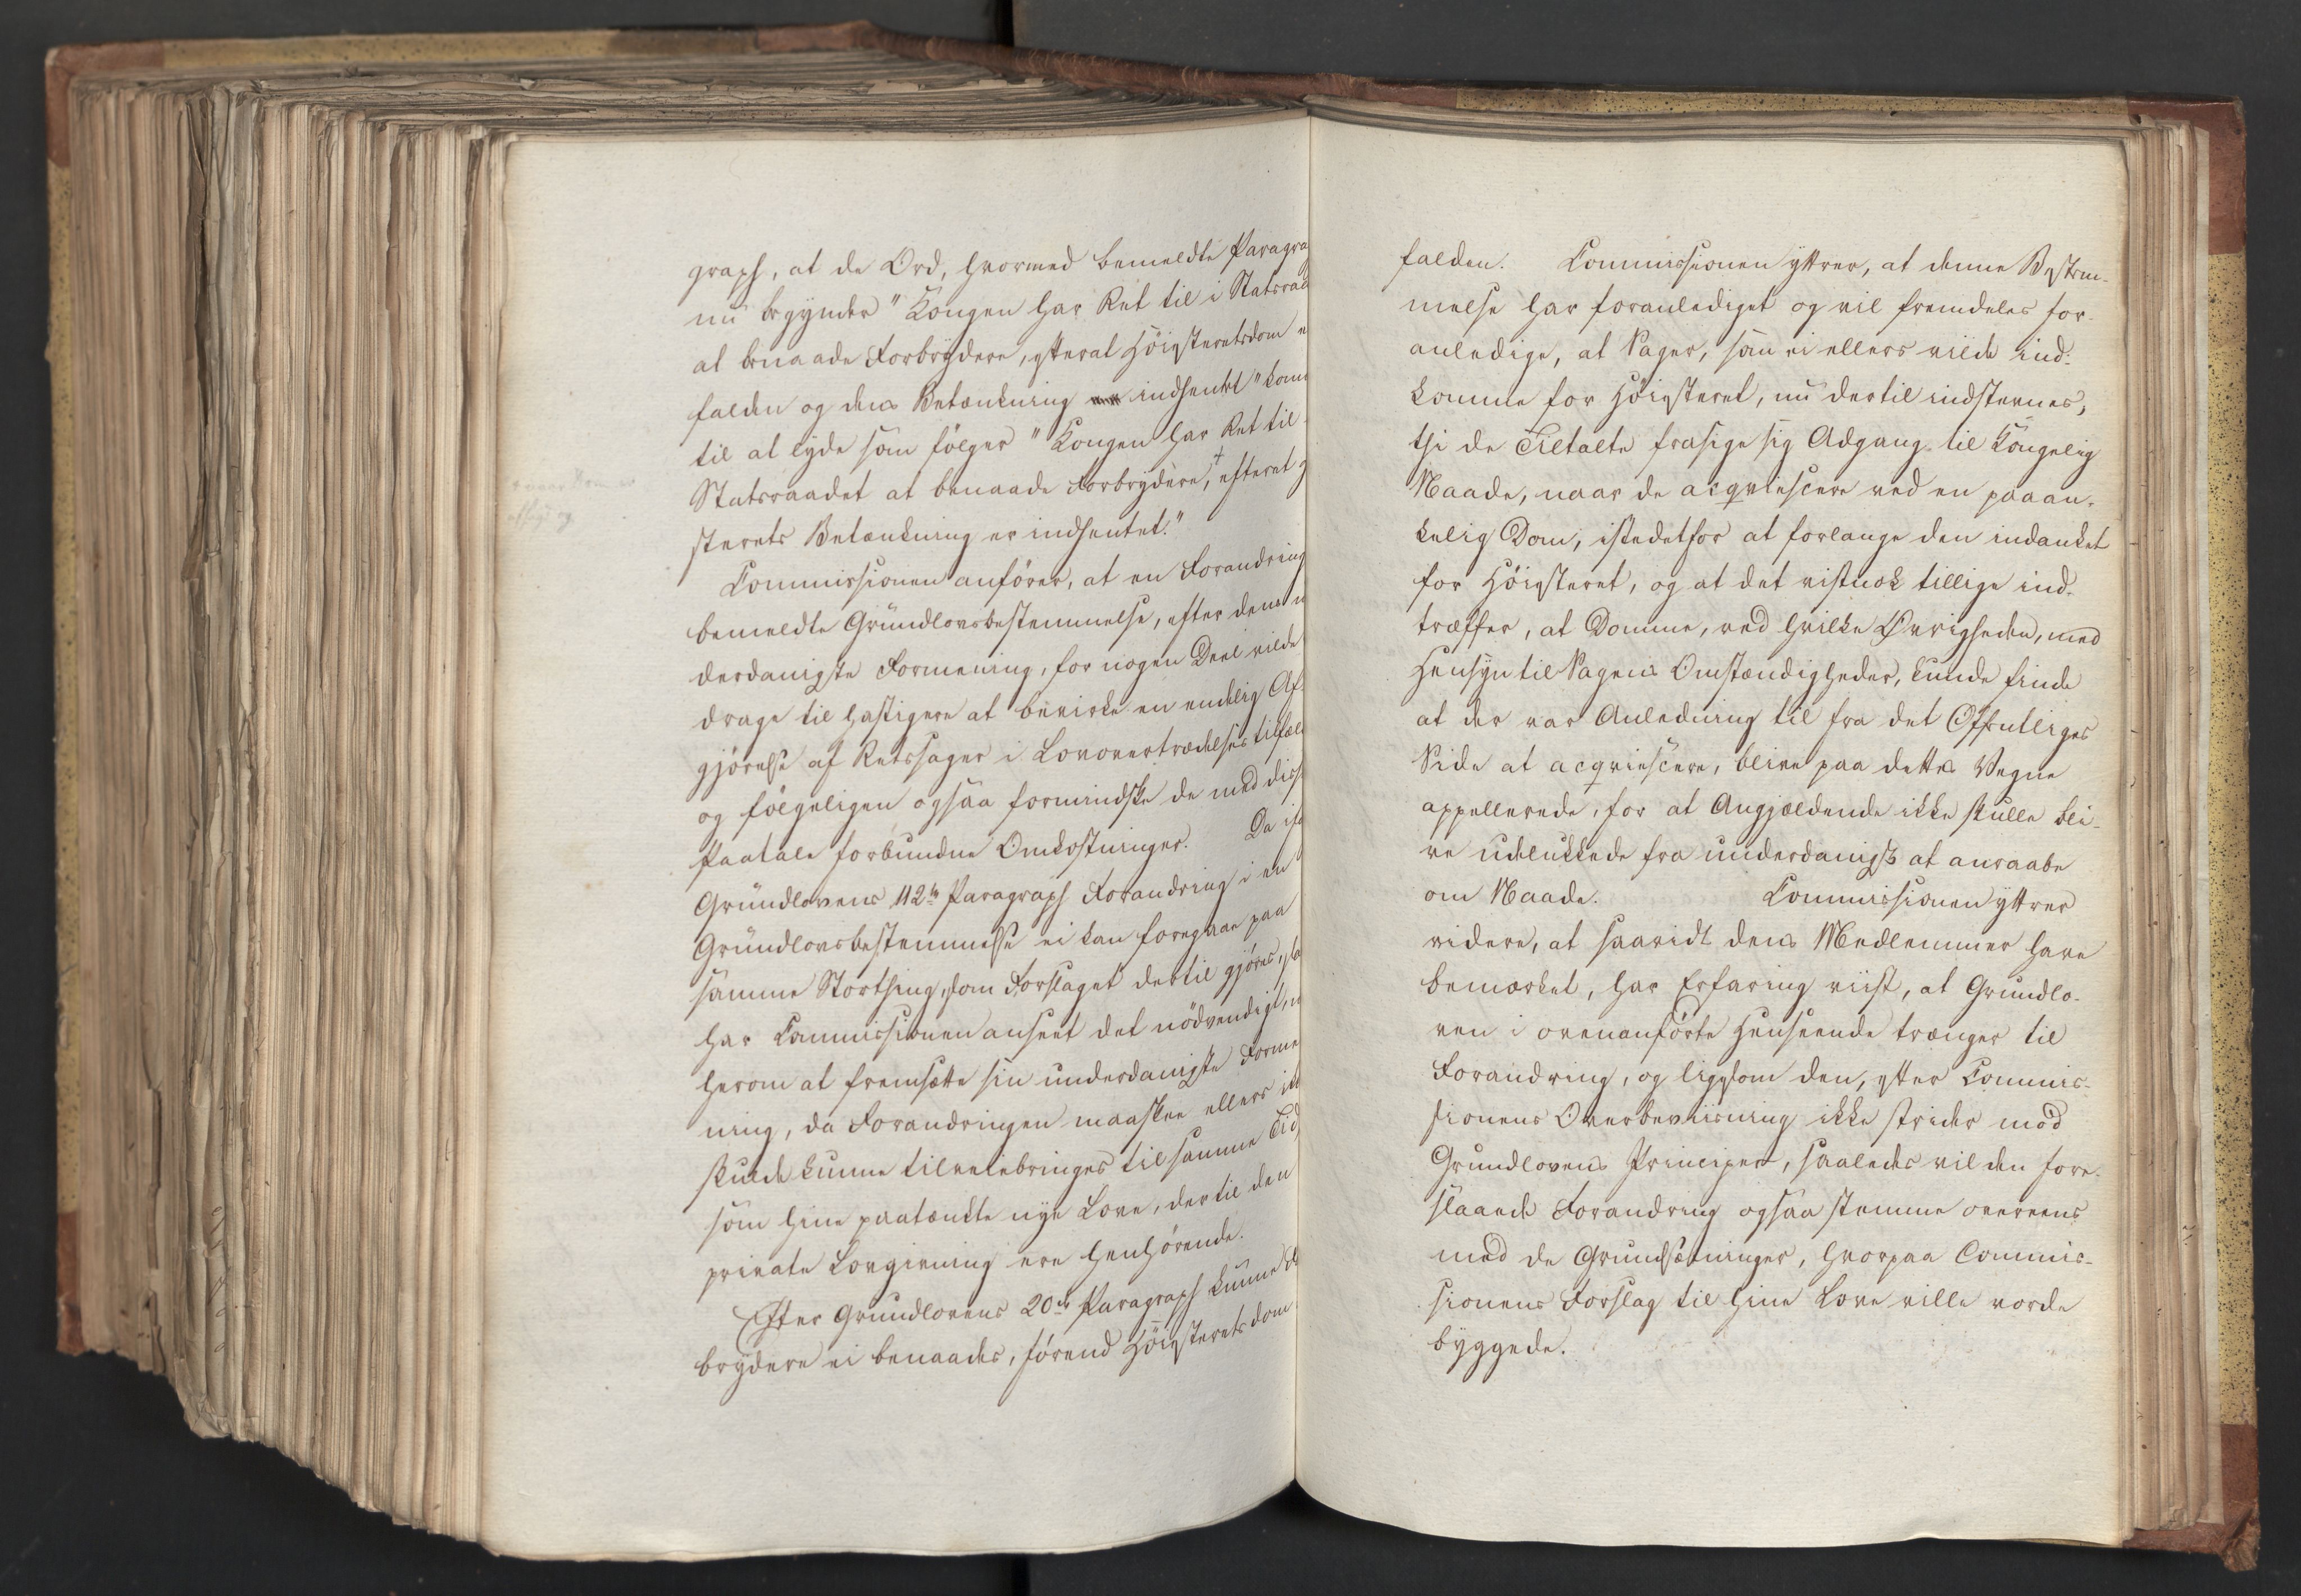 graph, at de Ord, hvormed bemeldte Paragra
nu begynder "Kongen har Ret til i Statsraa
at benaade Forbrydere, efterat Höiesteretsdom e
falden og dens Betænkning indhentet" kom
til at lyde som følger "Kongen har Ret til
Statsraadet at benaade Forbrydere,† efterat
naar Dom er
afsagt og
sterets Betænkning er indhentet."
Commissionen anfører, at en Forandring
bemeldte Grundlovsbestemmelse, efter dens u
derdanigste Formening, for nogen Deel vilde
drage til hastigere at bevirke en endelig Af-
gjørelse af Retssager i Lovovertrædelsestilfæl
og følgeligen ogsaa formindske de med diss
Paatale forbundne Omkostninger. Da if
Grundlovens 112te Paragraph Forandring i en
Grundlovsbestemmelse ei kan foregaae paa
samme Storthing, som Forslaget dertil gjøres, sa
har Commissionen anseet det nödvendigt, n
herom at fremsætte sin underdanigste Forme
ning, da Forandringen maaskee ellers ik
skulde kunne tilveiebringes til samme Tid,
som hine paatænkte nye Love, der til den
private Lovgivning ere henhörende.
Efter Grundlovens 20de Paragraph kunne
brydere ei benaades, førend Höiesteretsdom
falden. Commissionen yttrer, at denne Bestem-
melse har foranlediget og vil fremdeles for-
anledige, at Sager, som ei ellers vilde ind-
komme for Höiesteret, nu dertil indstevnes,
thi de Tiltalte frasige sig Adgang til Kongelig
Naade, naar de acqviescere ved en paaan-
kelig Dom, istedetfor at forlange den indanket
for Höiesteret, og at det vistnok tillige ind-
træffer, at Domme, ved hvilke Øvrigheden, med
Hensyn til Sagens Omstændigheder, kunde finde
at der var Anledning til fra det Offentliges
Side at acqviescere, blive paa dettes Vegne
appellerede, for at Angjældende ikke skulle bli-
ve udelukkede fra underdanigst at anraabe
om Naade. Commissionen yttrer
videre, at saavidt dens Medlemmer have
bemærket, har Erfaring viist, at Grundlo-
ven i ovenanførte Henseende trænger til
Forandring, og ligesom den, efter Commis-
sionens Overbeviisning ikke strider mod
Grundlovens Principer, saaledes vil den fore-
slaaede Forandring ogsaa stemme overeens
med de Grundsætninger, hvorpaa Commis-
sionens Forslag til hine Love ville vorde
byggede.